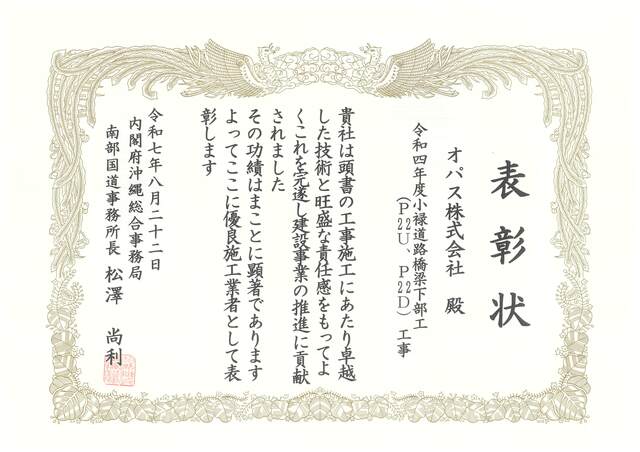 表彰状
オパス株式会社 殿
令和四年度小禄道路橋梁下部工
(P22U、P22D)工事
貴社は頭書の工事施工にあたり卓越
した技術と旺盛な責任感をもってよ
くこれを完遂し建設事業の推進に貢献
されました
その功績はまことに顕著であります
よってここに優良施工業者として表
彰します
令和七年八月二十二日
内閣府沖縄総合事務局
南部国道事務所長 松澤 尚利